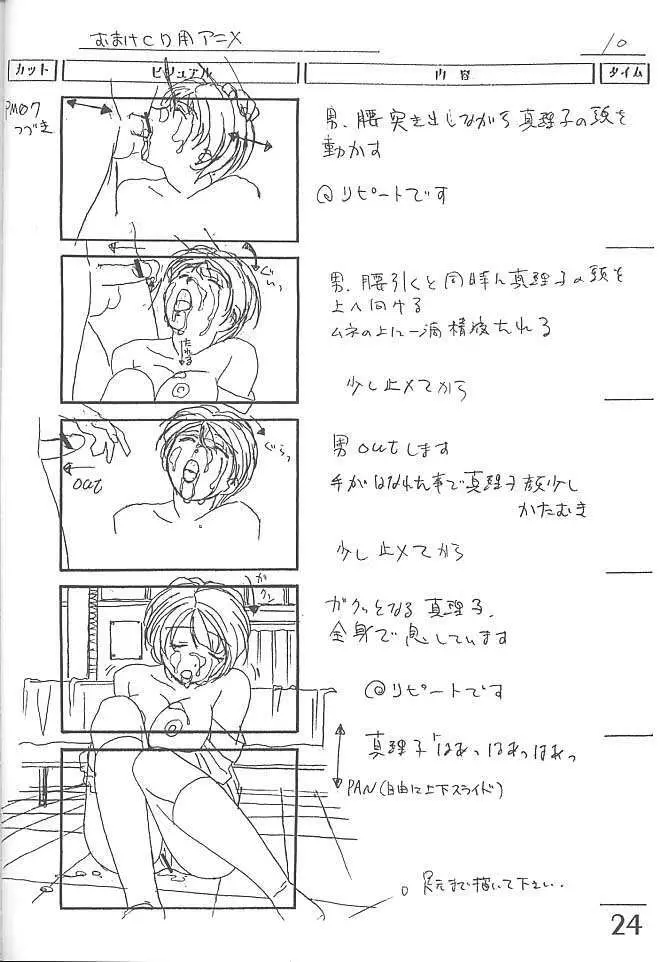 おまけCD用アニメ
10
カット
ビジュアル
内容
タイム
PM07
つづき
男、腰突き出しながら真理子の頭を
動かす
リピートです
ぐいっ
たれる
男、腰引くと同時に真理子の頭を
上へ向ける
ムネの上に一滴精液たれる
少し止メてから
out
ぐらっ
男outします
手がはなれた事で真理子顔少し
かたむき
少し止メてから
ガクン
ガクッとなる真理子、
全身で息しています
リピートです
真理子「はあっはあっはあっ
PAN(自由に上下スライド)
足元まで描いて下さい.
24